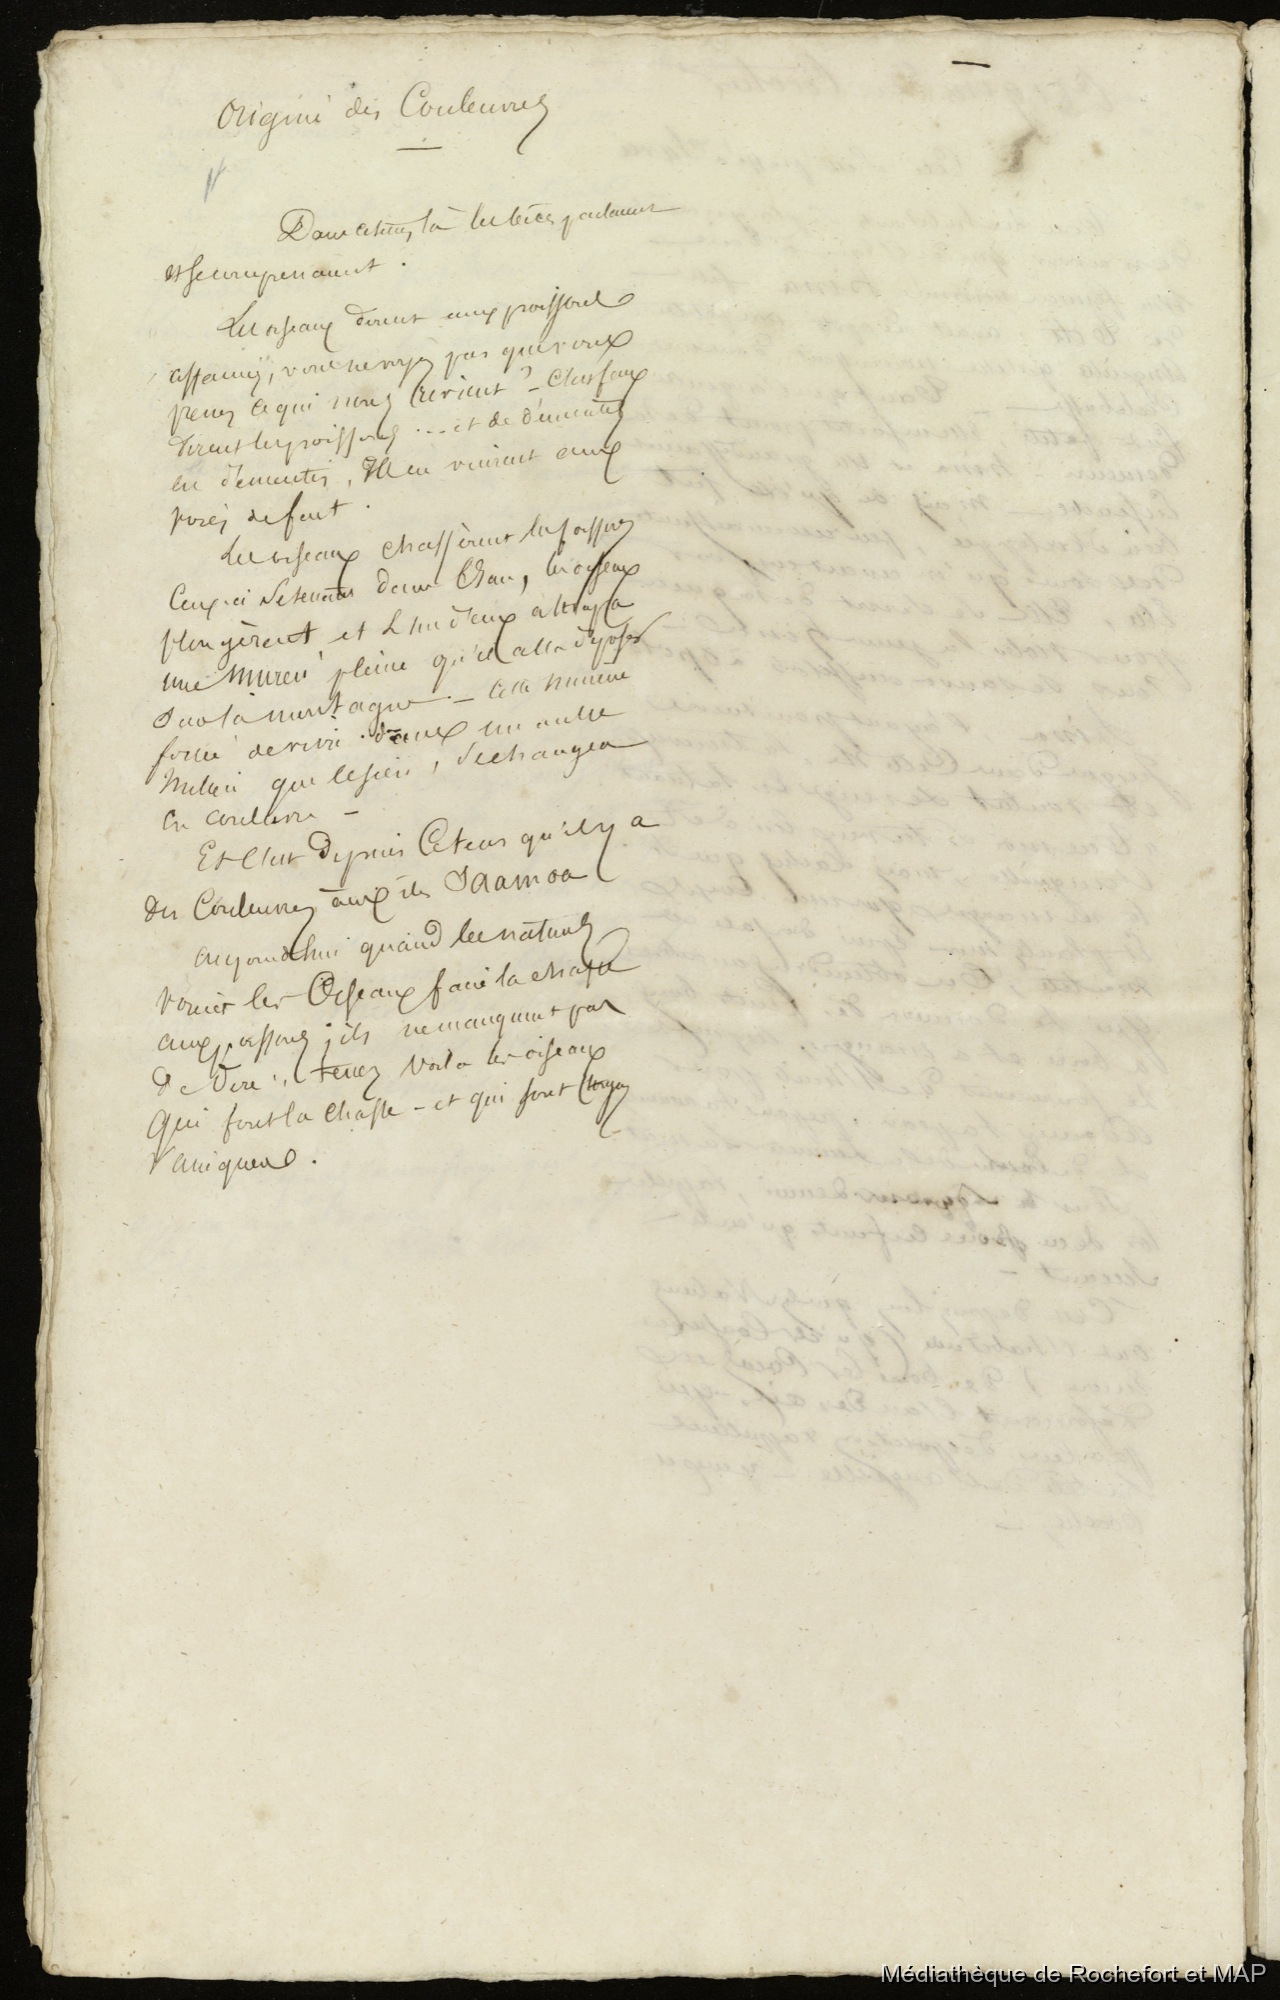 Origine des Couleuvres
Dans ce tems là les bêtes parlaient
et se comprenaient.
Les oiseaux dirent aux poissons
affamés, vous ne voyez pas que vous
prenez ce qui nous revient ? – C'est faux
dirent les poissons ... et de démentis
en démentis, ils en vinrent aux
voies de fait.
Les oiseaux chassèrent les poissons
Ceux-ci se tenant dans l'Eau, les oiseaux
plongèrent, et l'un d'eux attrapa
une murène pleine qu'il alla déposer
sur la montagne. – Cette murène
forcée de vivre dans un autre
milieu que le sien, se changea
en couleuvre –
Et c'est depuis ce tems qu'il y a
des Couleuvres aux îles Saamoa
aujourd'hui quand les naturels
voient les Oiseaux faire la chasse
aux poissons, ils ne manquent pas
de dire : tenez voilà les oiseaux
qui font la chasse – et qui sont
vainqueurs.
Médiathèque de Rochefort et MAP